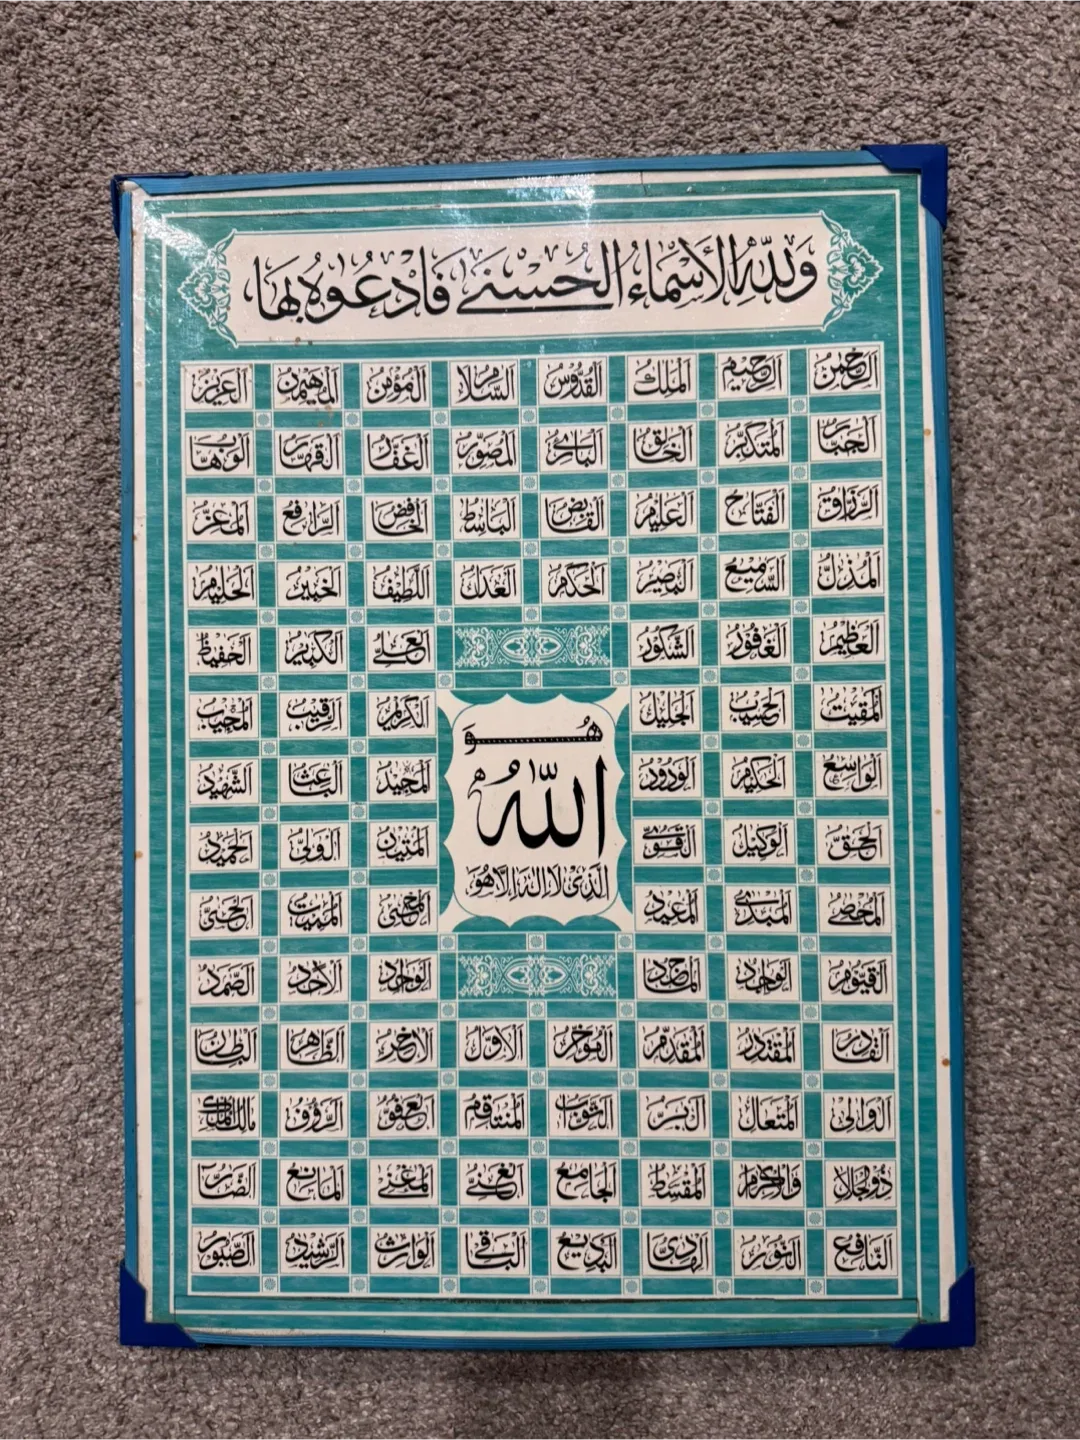 وَلِلّٰهِ الْأَسْمَاءُ الْحُسْنَىٰ فَادْعُوهُ بِهَا
الرحمن الرحيم الملك القدوس السلام المؤمن المهيمن العزيز
الجبار المتكبر الخالق البارئ المصور الغفار القهار الوهاب
الرزاق الفتاح العليم القابض الباسط الخافض الرافع المعز
المذل السميع البصير الحكم العدل اللطيف الخبير الحليم
العظيم الغفور الشكور العلي الكبير الحفيظ
المقيت الحسيب الجليل الكريم الرقيب المجيب
الواسع الحكيم الودود المجيد الباعث الشهيد
الحق الوكيل القوي المتين الولي الحميد
المحصي المبدئ المعيد المحيي المميت الحي
القيوم الواجد الماجد الواحد الاحد الصمد
هُوَ
الله
الذي لا اله الا هو
القادر المقتدر المقدم المؤخر الاول الاخر الظاهر الباطن
الوالي المتعال البر التواب المنتقم العفو الرؤوف مالك الملك
ذوالجلال والاكرام المقسط الجامع الغني المغني المانع الضار
النافع النور الهادي البديع الباقي الوارث الرشيد الصبور